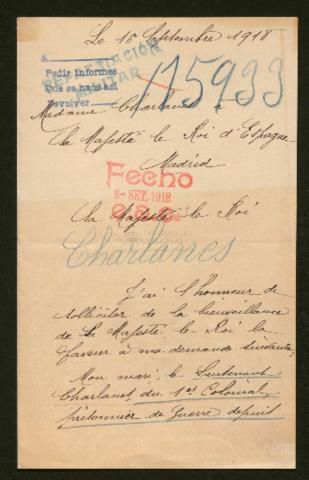 Le 15 Septembre 1918
REPRESENTACIÓN
MILITAR
A
Pedir informes
Que se haga así
Devolver
115933
Madame Charlanes à
Sa Majesté le Roi d'Espagne
Madrid
Fecho
8-SET. 1918
Sa Majesté le Roi
Charlanes
J'ai l'honneur de
solliciter de la bienveillance
de Sa Majesté le Roi la
faveur à ma demande suivante;
Mon mari, le Lieutenant
Charlanes du 1er Colonial,
prisonnier de Guerre depuis